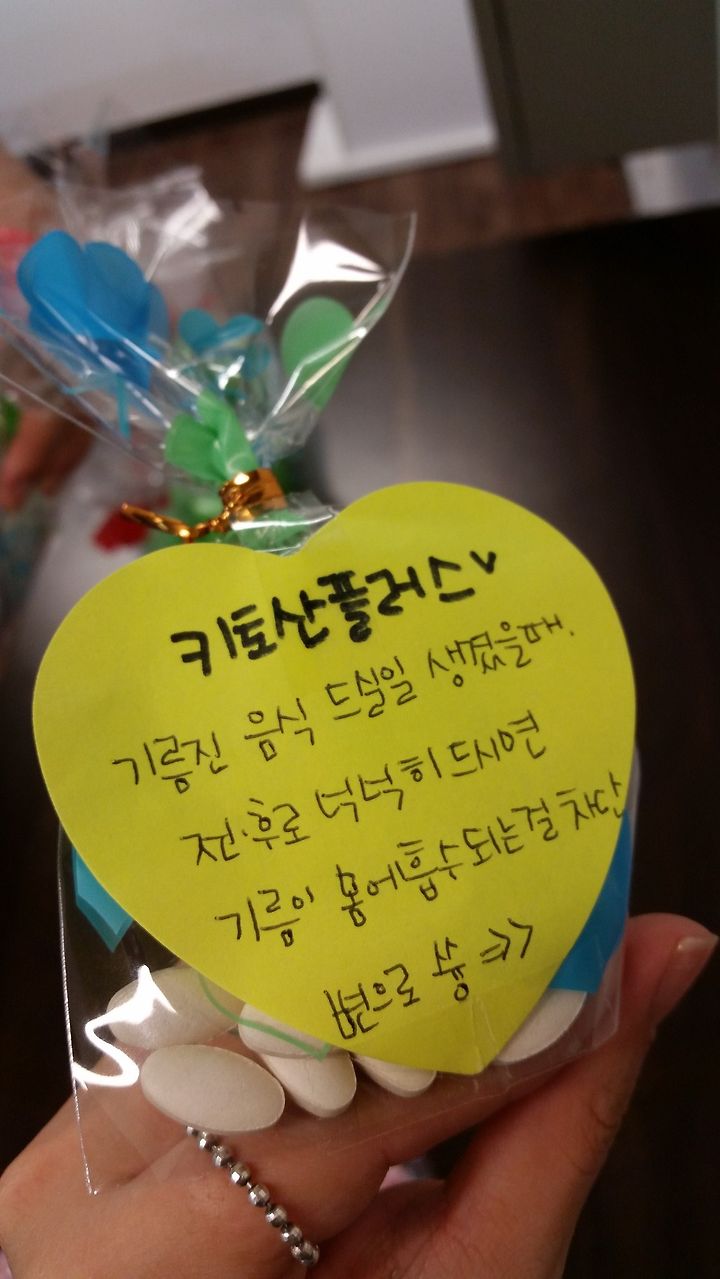 키토산플러스v
기름진 음식 드실일 생겼을때.
전·후로 넉넉히 드시면
기름이 몸에흡수되는걸 차단
변으로 슝 =>>